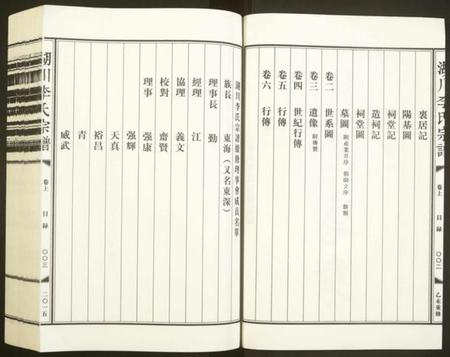 湖川李氏宗譜
卷上
目錄
〇〇二
乙未重修
裏居記
陽基圖
祠堂記
造祠記
祠堂圖
墓圖
卷二 世系圖
卷三 遺像 附傳贊
卷四 世紀行傳
卷五 行傳
卷六 行傳
湖川李氏宗譜續修理事會成員名單
族長 東海（又名東深）
理事長 勤
經理 江
協理 義文
校對 齋賢
理事 强康
强輝
天真
裕昌
青
威武
湖川李氏宗譜
卷上
目錄
〇〇三
二〇一五